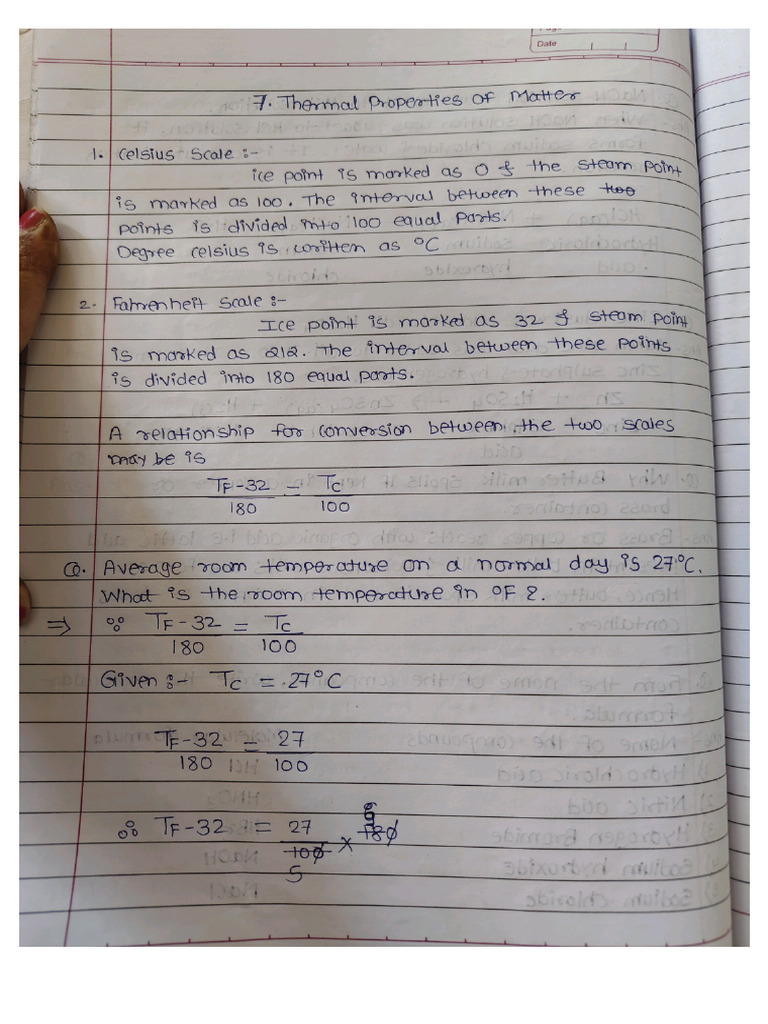 Date
7. Thermal Properties of Matter
1. Celsius Scale :-
ice point is marked as 0 & the steam point
is marked as 100. The interval between these two
points is divided into 100 equal parts.
Degree celsius is written as °C
2. Fahrenheit Scale :-
Ice point is marked as 32 & steam point
is marked as 212. The interval between these points
is divided into 180 equal parts.
A relationship for conversion between the two scales
may be is
TF-32 = TC
180 100
Q. Average room temperature on a normal day is 27°C.
What is the room temperature in °F ?
⇒ ∵ TF-32 = TC
180 100
Given :- TC = 27°C
TF-32 = 27
180 100
∴ TF-32 = 27 × 180
100
5